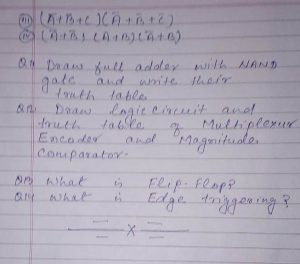 (iii) (A̅+B̅+C) (A̅+B̅+C̅)
(iv) (A̅+B̅) (A+B) (A̅+B)
Q11 Draw full adder with NAND
gate and write their
truth table
Q12 Draw logic circuit and
truth table of Multiplexur
Encoder and Magnitude
Comparator.
Q13 What is Flip-Flop?
Q14 What is Edge triggering?
X